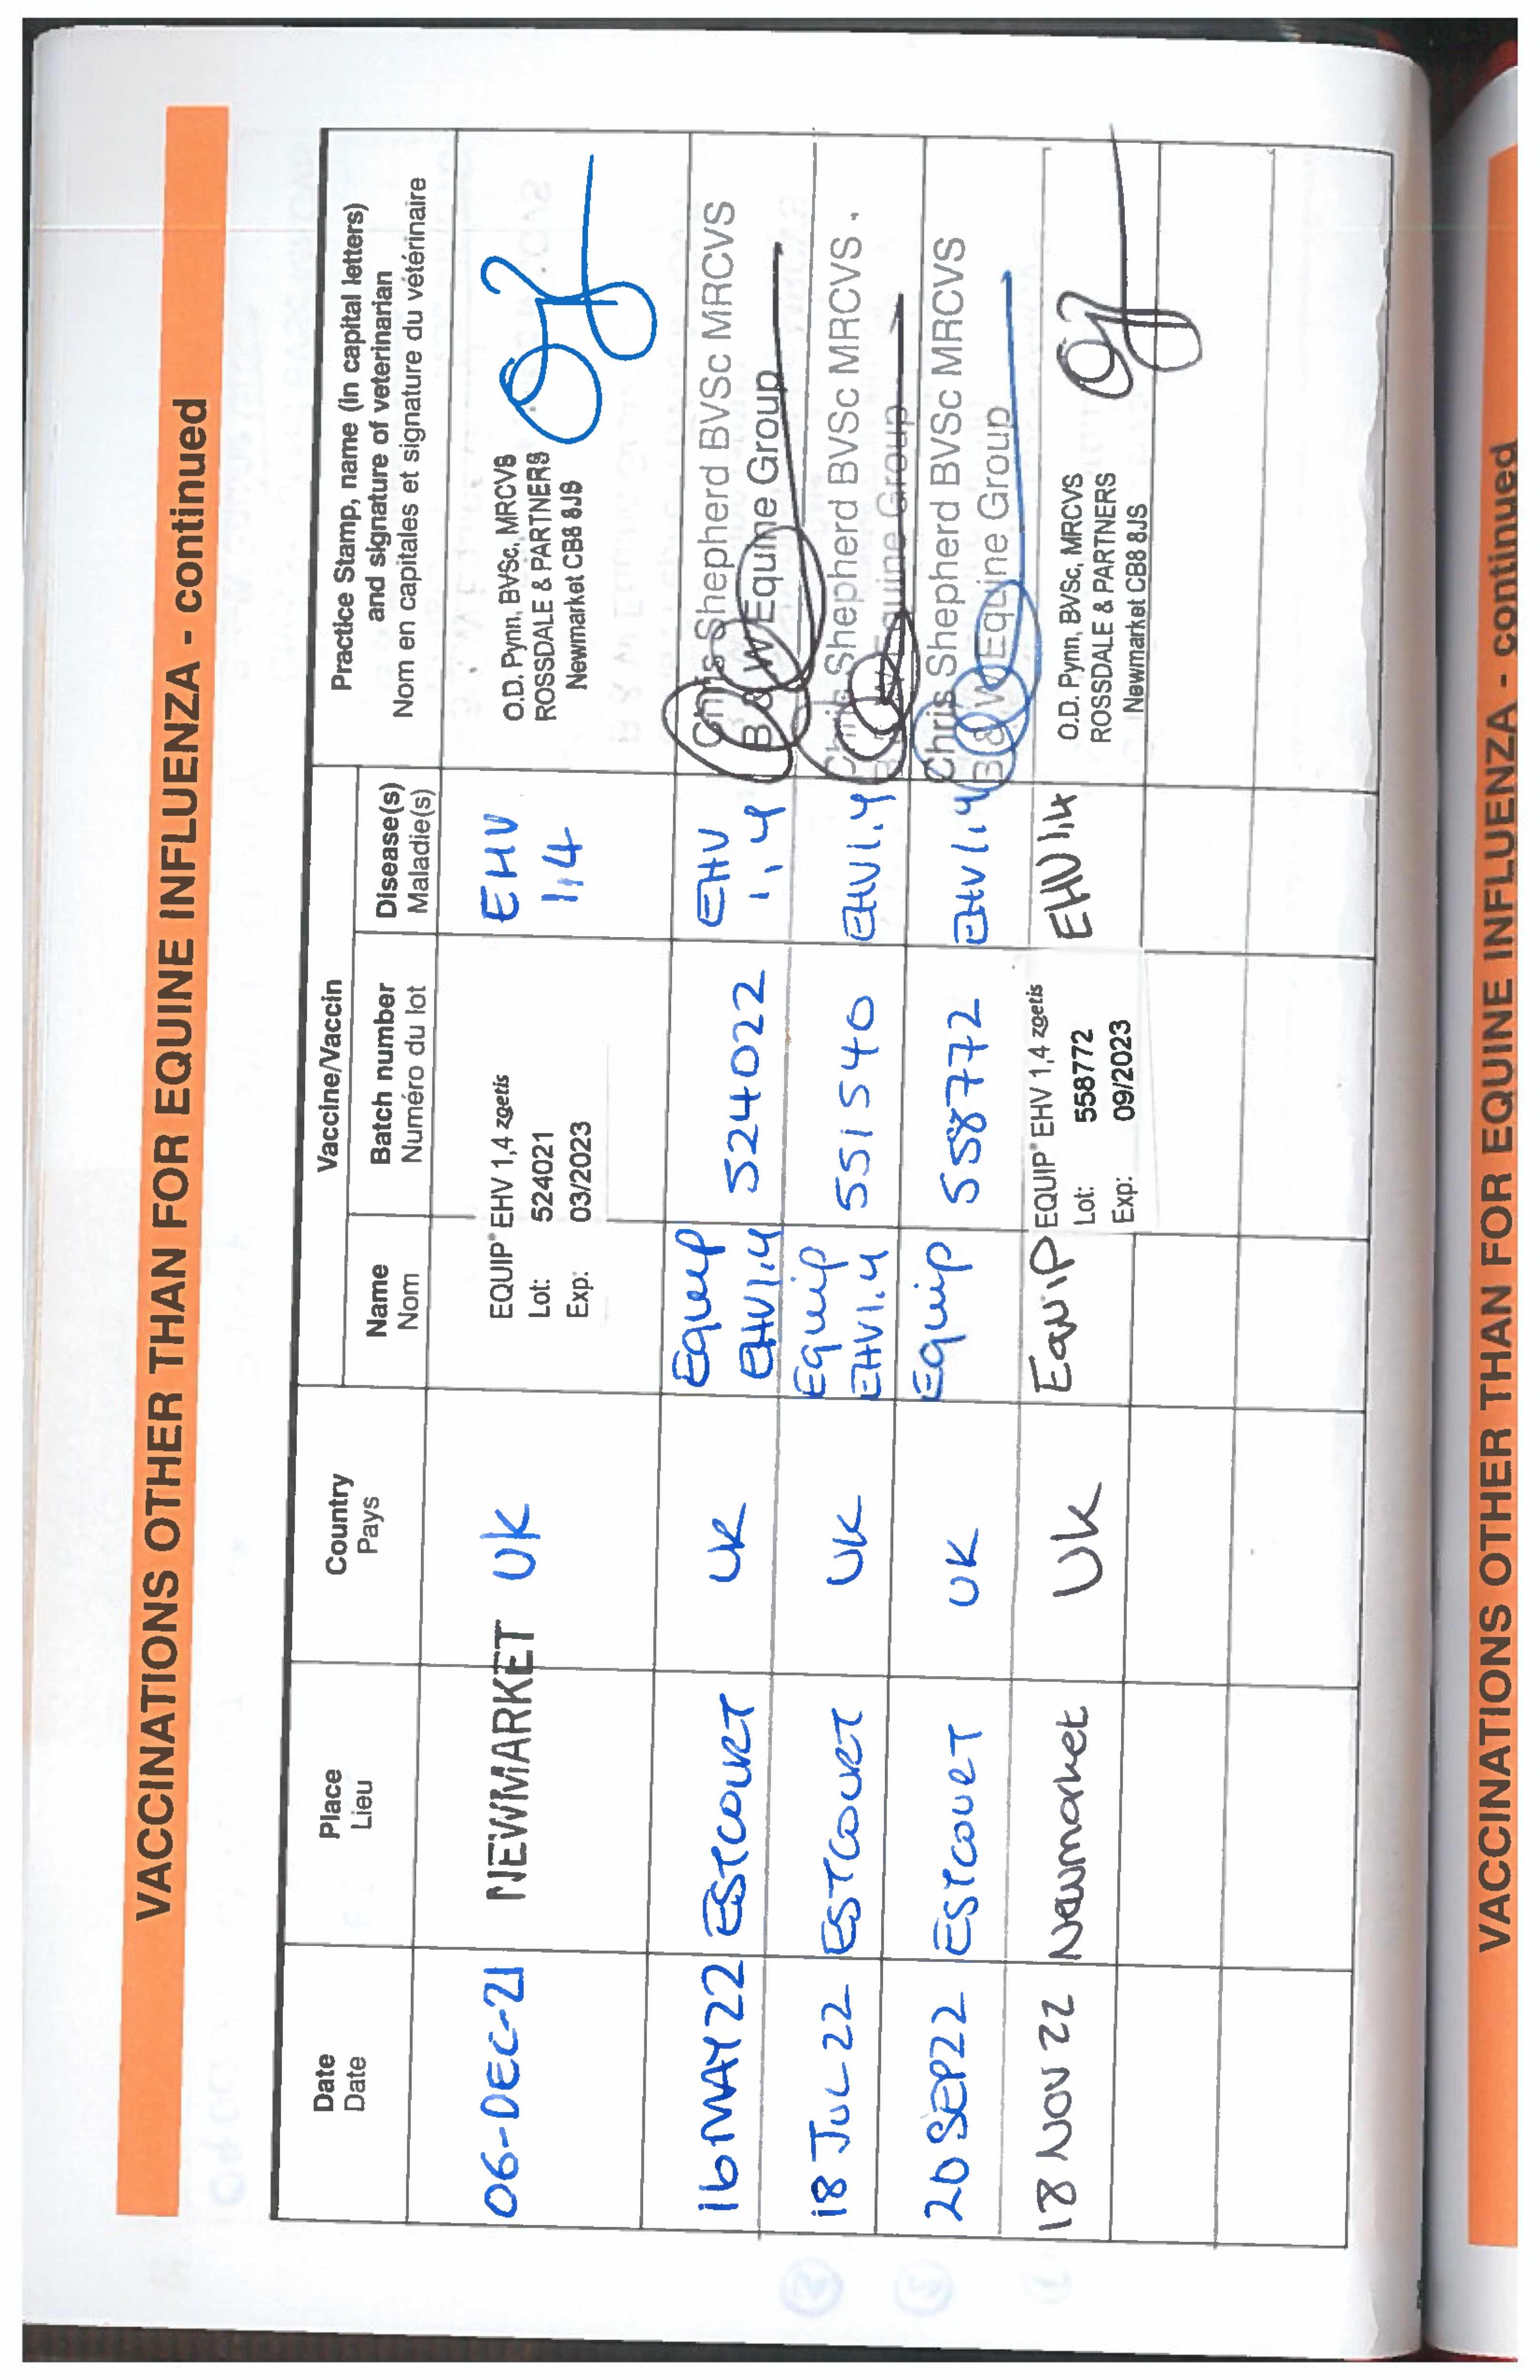 VACCINATIONS OTHER THAN FOR EQUINE INFLUENZA - continued
Date
Date
Place
Lieu
Country
Pays
Vaccine/Vaccin
Name
Nom
Batch number
Numéro du lot
Disease(s)
Maladie(s)
Practice Stamp, name (in capital letters)
and signature of veterinarian
Nom en capitales et signature du vétérinaire
06-DEC-21
NEWMARKET
UK
EQUIP® EHV 1,4 zoetis
Lot: 524021
Exp: 03/2023
EHV
1,4
O.D. Pynn, BVSc, MRCVS
ROSSDALE & PARTNERS
Newmarket CB8 8JS
16 MAY 22
ESTCOURT
UK
Equip
EHV1.4
524022
EHV
1,4
Chris Shepherd BVSc MRCVS
B & W Equine Group
18 JUL 22
ESTCOURT
UK
Equip
EHV1.4
551540
EHV1.4
Chris Shepherd BVSc MRCVS.
Equine Group
20 SEP22
ESTCOURT
UK
Equip
558772
EHV1.4
Chris Shepherd BVSc MRCVS
B & W Equine Group
18 NOV 22
Newmarket
UK
EQUIP
EQUIP® EHV 1,4 zoetis
Lot: 558772
Exp: 09/2023
EHV 1,4
O.D. Pynn, BVSc, MRCVS
ROSSDALE & PARTNERS
Newmarket CB8 8JS
VACCINATIONS OTHER THAN FOR EQUINE INFLUENZA - continued